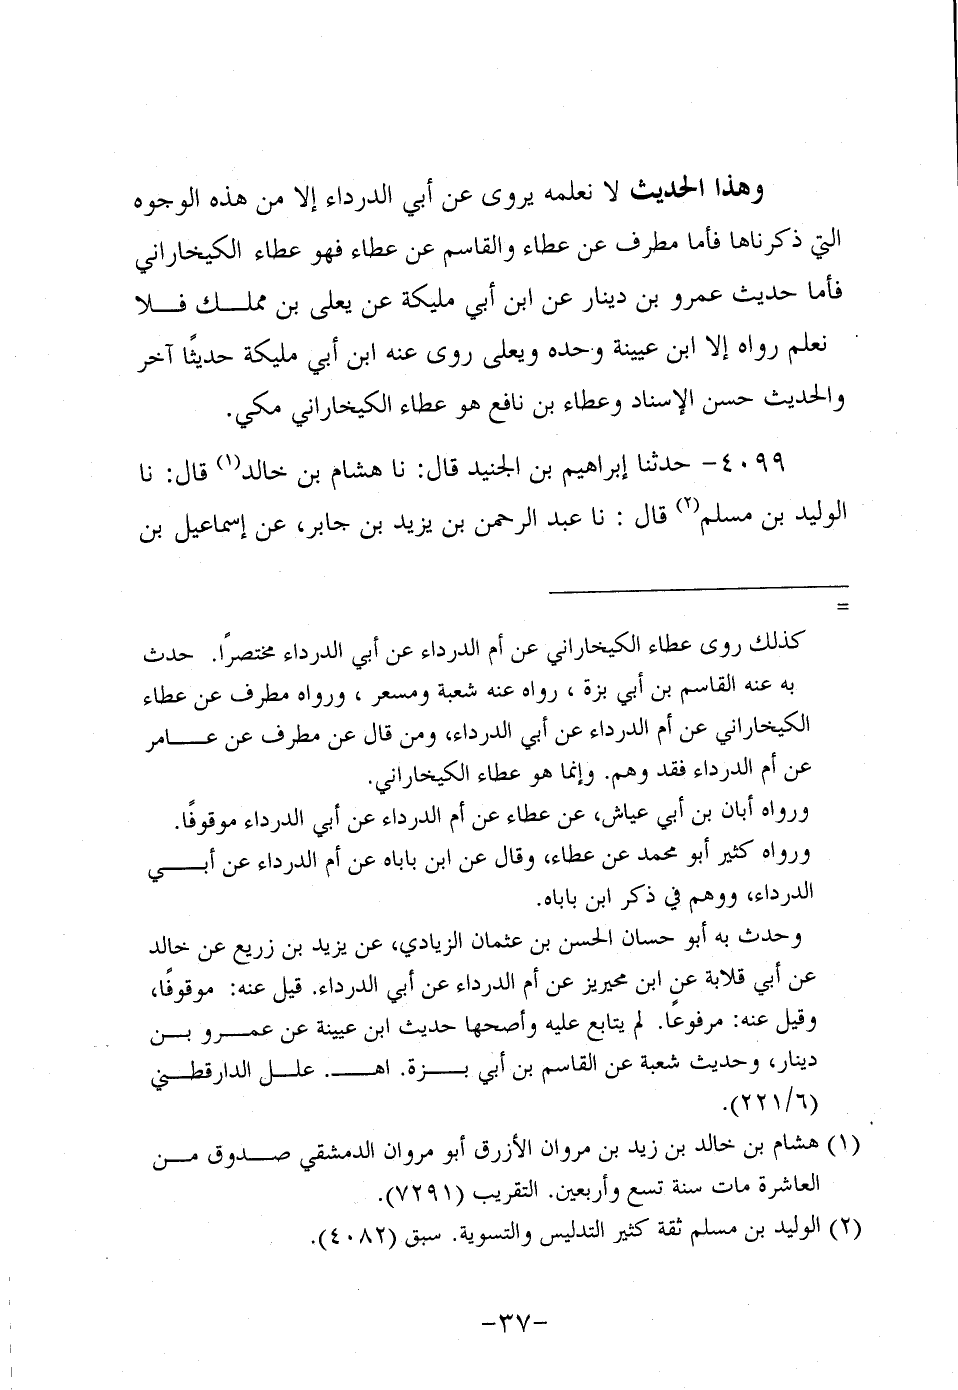 وهذا الحديث لا نعلمه يروى عن أبي الدرداء إلا من هذه الوجوه
التي ذكرناها فأما مطرف عن عطاء والقاسم عن عطاء فهو عطاء الكيخاراني
فأما حديث عمرو بن دينار عن ابن أبي مليكة عن يعلى بن مملـــك فـــلا
نعلم رواه إلا ابن عيينة وحده ويعلى روى عنه ابن أبي مليكة حديثًا آخر
والحديث حسن الإسناد وعطاء بن نافع هو عطاء الكيخاراني مكي.
٤٠٩٩- حدثنا إبراهيم بن الجنيد قال: نا هشام بن خالد(١) قال: نا
الوليد بن مسلم(٢) قال : نا عبد الرحمن بن يزيد بن جابر، عن إسماعيل بن
=
كذلك روى عطاء الكيخاراني عن أم الدرداء عن أبي الدرداء مختصرًا. حدث
به عنه القاسم بن أبي بزة ، رواه عنه شعبة ومسعر ، ورواه مطرف عن عطاء
الكيخاراني عن أم الدرداء عن أبي الدرداء، ومن قال عن مطرف عن عـــامر
عن أم الدرداء فقد وهم. وإنما هو عطاء الكيخاراني.
ورواه أبان بن أبي عياش، عن عطاء عن أم الدرداء عن أبي الدرداء موقوفًا.
ورواه كثير أبو محمد عن عطاء، وقال عن ابن باباه عن أم الدرداء عن أبـــي
الدرداء، ووهم في ذكر ابن باباه.
وحدث به أبو حسان الحسن بن عثمان الزيادي، عن يزيد بن زريع عن خالد
عن أبي قلابة عن ابن محيريز عن أم الدرداء عن أبي الدرداء. قيل عنه: موقوفًا،
وقيل عنه: مرفوعًا. لم يتابع عليه وأصحها حديث ابن عيينة عن عمـــرو بـــن
دينار، وحديث شعبة عن القاسم بن أبي بـــزة. اهـــ. علـــل الدارقطـــني
(٢٢١/٦).
(١) هشام بن خالد بن زيد بن مروان الأزرق أبو مروان الدمشقي صـــدوق مـــن
العاشرة مات سنة تسع وأربعين. التقريب (٧٢٩١).
(٢) الوليد بن مسلم ثقة كثير التدليس والتسوية. سبق (٤٠٨٢).
-٣٧-